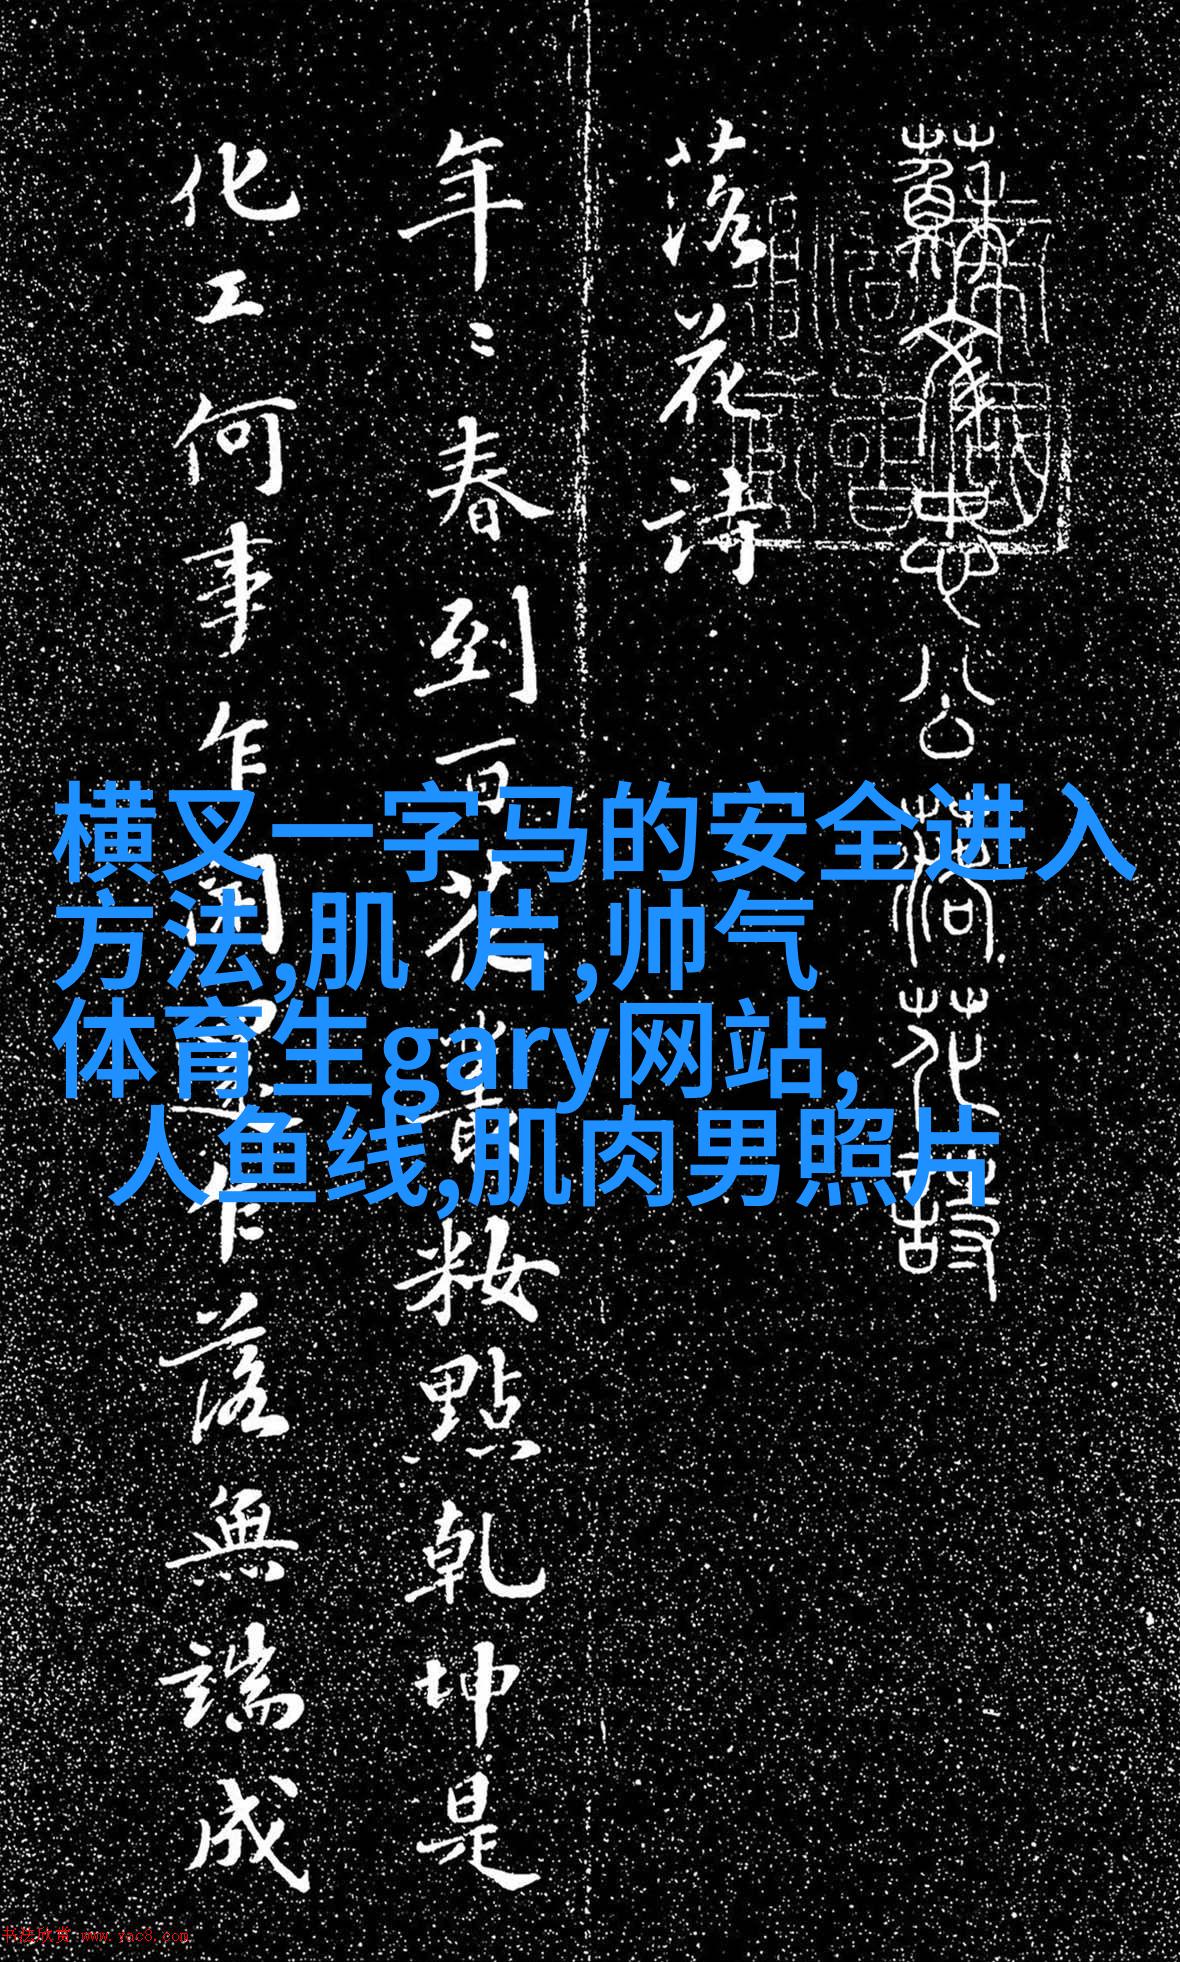 蘇文忠公落花詩
落花詩
年〻春到百花叢粧點乾坤是
化工何事乍開還乍落無端成
横叉一字马的安全进入
方法,肌 片,帅气
体育生gary网站,
人鱼线,肌肉男照片
书法欣赏 www.yac8.com